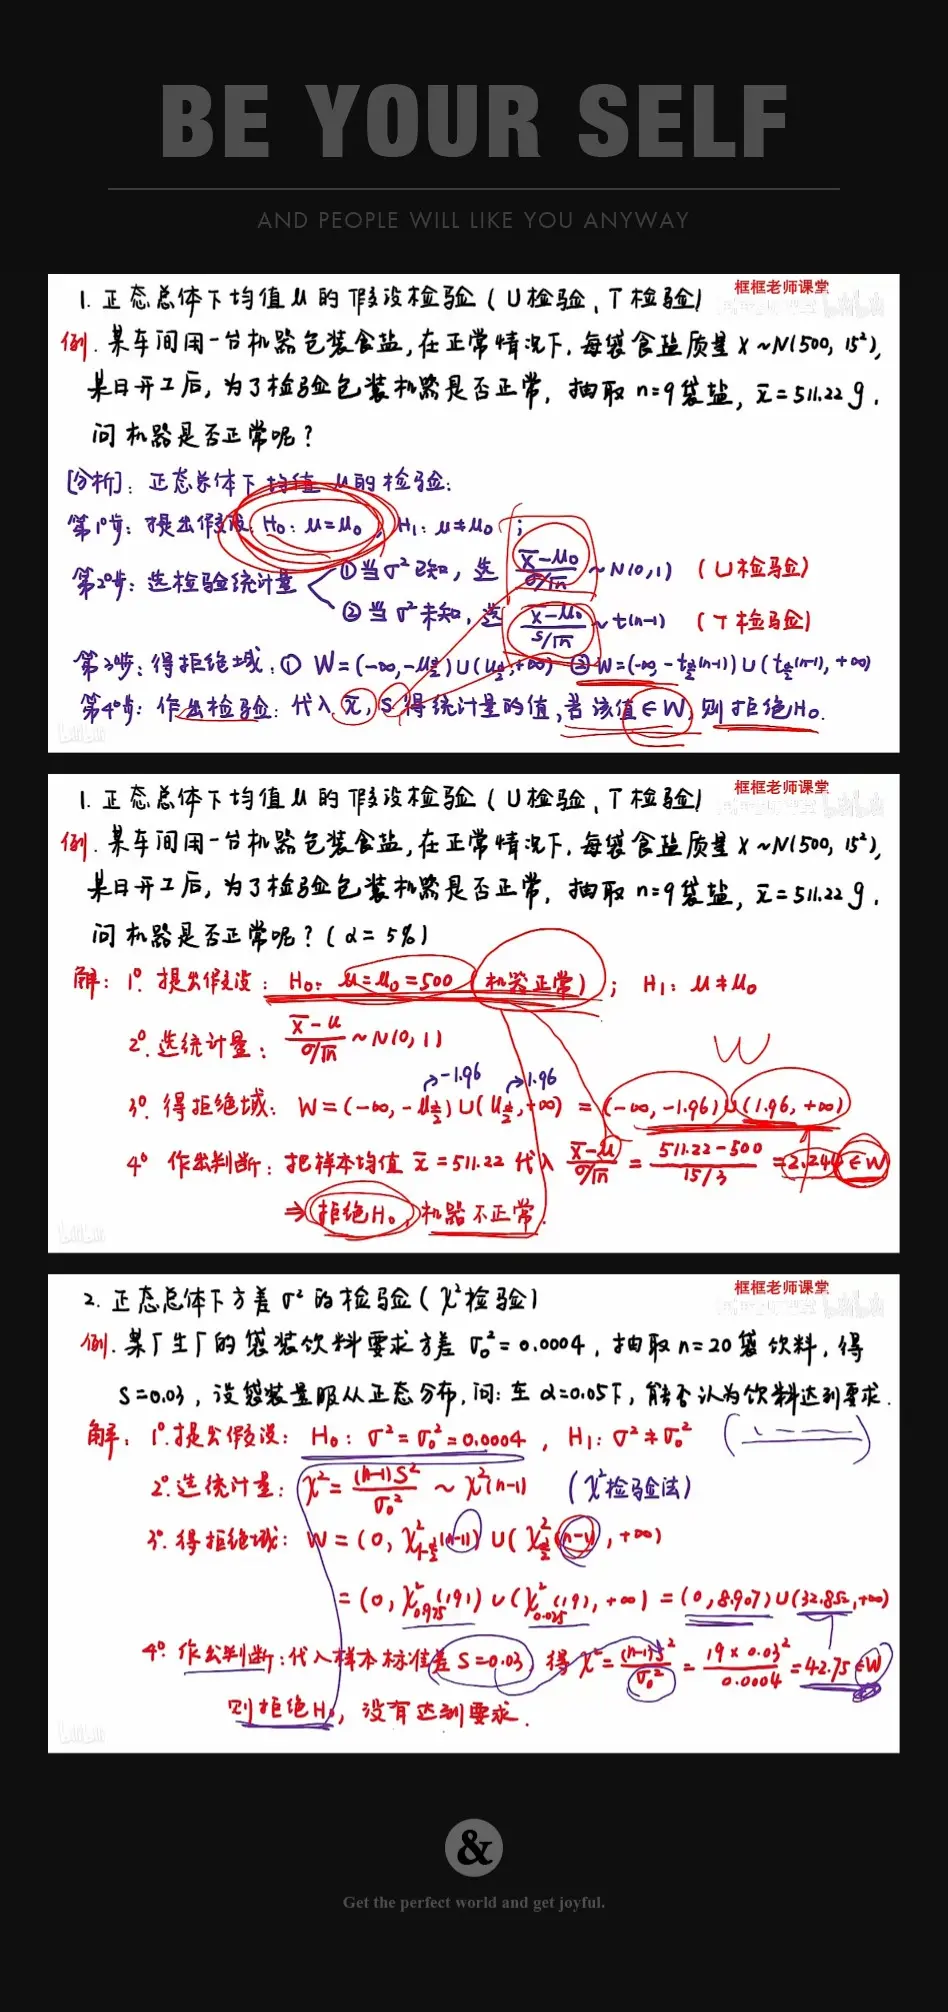 BE YOUR SELF
AND PEOPLE WILL LIKE YOU ANYWAY
框框老师课堂
1. 正态总体下均值 μ 的假设检验（U检验、T检验）
例. 某车间用一台机器包装食盐，在正常情况下，每袋食盐质量 X ~ N(500, 15²),
某日开工后，为了检验包装机器是否正常，抽取 n=9袋盐，x̄=511.22g.
问机器是否正常呢？
[分析]: 正态总体下 均值 μ的检验:
第1步: 提出假设 H₀: μ=μ₀, H₁: μ≠μ₀ ;
第2步: 选检验统计量 ①当σ²已知，选 (X̄-μ₀)/(σ/√n) ~ N(0,1) (U检验)
②当σ²未知，选 (X̄-μ₀)/(S/√n) ~ t(n-1) (T检验)
第3步: 得拒绝域: ① W=(-∞, -μ_{α/2})∪(μ_{α/2}, +∞) ② W=(-∞, -t_{α/2}(n-1))∪(t_{α/2}(n-1), +∞)
第4步: 作出检验: 代入 x̄, S 得统计量的值, 若该值∈W, 则拒绝H₀.
bilibili
框框老师课堂
1. 正态总体下均值 μ 的假设检验（U检验、T检验）
例. 某车间用一台机器包装食盐，在正常情况下，每袋食盐质量 X ~ N(500, 15²),
某日开工后，为了检验包装机器是否正常，抽取 n=9袋盐，x̄=511.22g.
问机器是否正常呢？(α=5%)
解: 1°. 提出假设: H₀: μ=μ₀=500 (机器正常); H₁: μ≠μ₀
2°. 选统计量: (X̄-μ)/(σ/√n) ~ N(0,1)
W
→-1.96 →1.96
3°. 得拒绝域: W=(-∞, -μ_{α/2})∪(μ_{α/2}, +∞) = (-∞, -1.96)∪(1.96, +∞)
4° 作出判断: 把样本均值 x̄=511.22 代入 (X̄-μ)/(σ/√n) = (511.22-500)/(15/3) = 2.244 ∈W
⇒ 拒绝H₀, 机器不正常.
bilibili
框框老师课堂
2. 正态总体下方差 σ² 的检验（χ²检验）
例. 某厂生产的袋装饮料要求方差 σ₀²=0.0004, 抽取 n=20袋饮料, 得
S=0.03, 设袋装量服从正态分布, 问: 在 α=0.05下, 能否认为饮料达到要求.
解: 1°. 提出假设: H₀: σ²=σ₀²=0.0004, H₁: σ²≠σ₀²
2°. 选统计量: χ²=(n-1)S²/σ₀² ~ χ²(n-1) (χ²检验法)
3°. 得拒绝域: W=(0, χ²_{1-α/2}(n-1))∪(χ²_{α/2}(n-1), +∞)
=(0, χ²_{0.975}(19))∪(χ²_{0.025}(19), +∞) = (0, 8.907)∪(32.852, +∞)
4°. 作出判断: 代入样本标准差 S=0.03, 得 χ²=(n-1)S²/σ₀² = 19×0.03²/0.0004 = 42.75 ∈W
则拒绝H₀, 没有达到要求.
bilibili
&
Get the perfect world and get joyful.